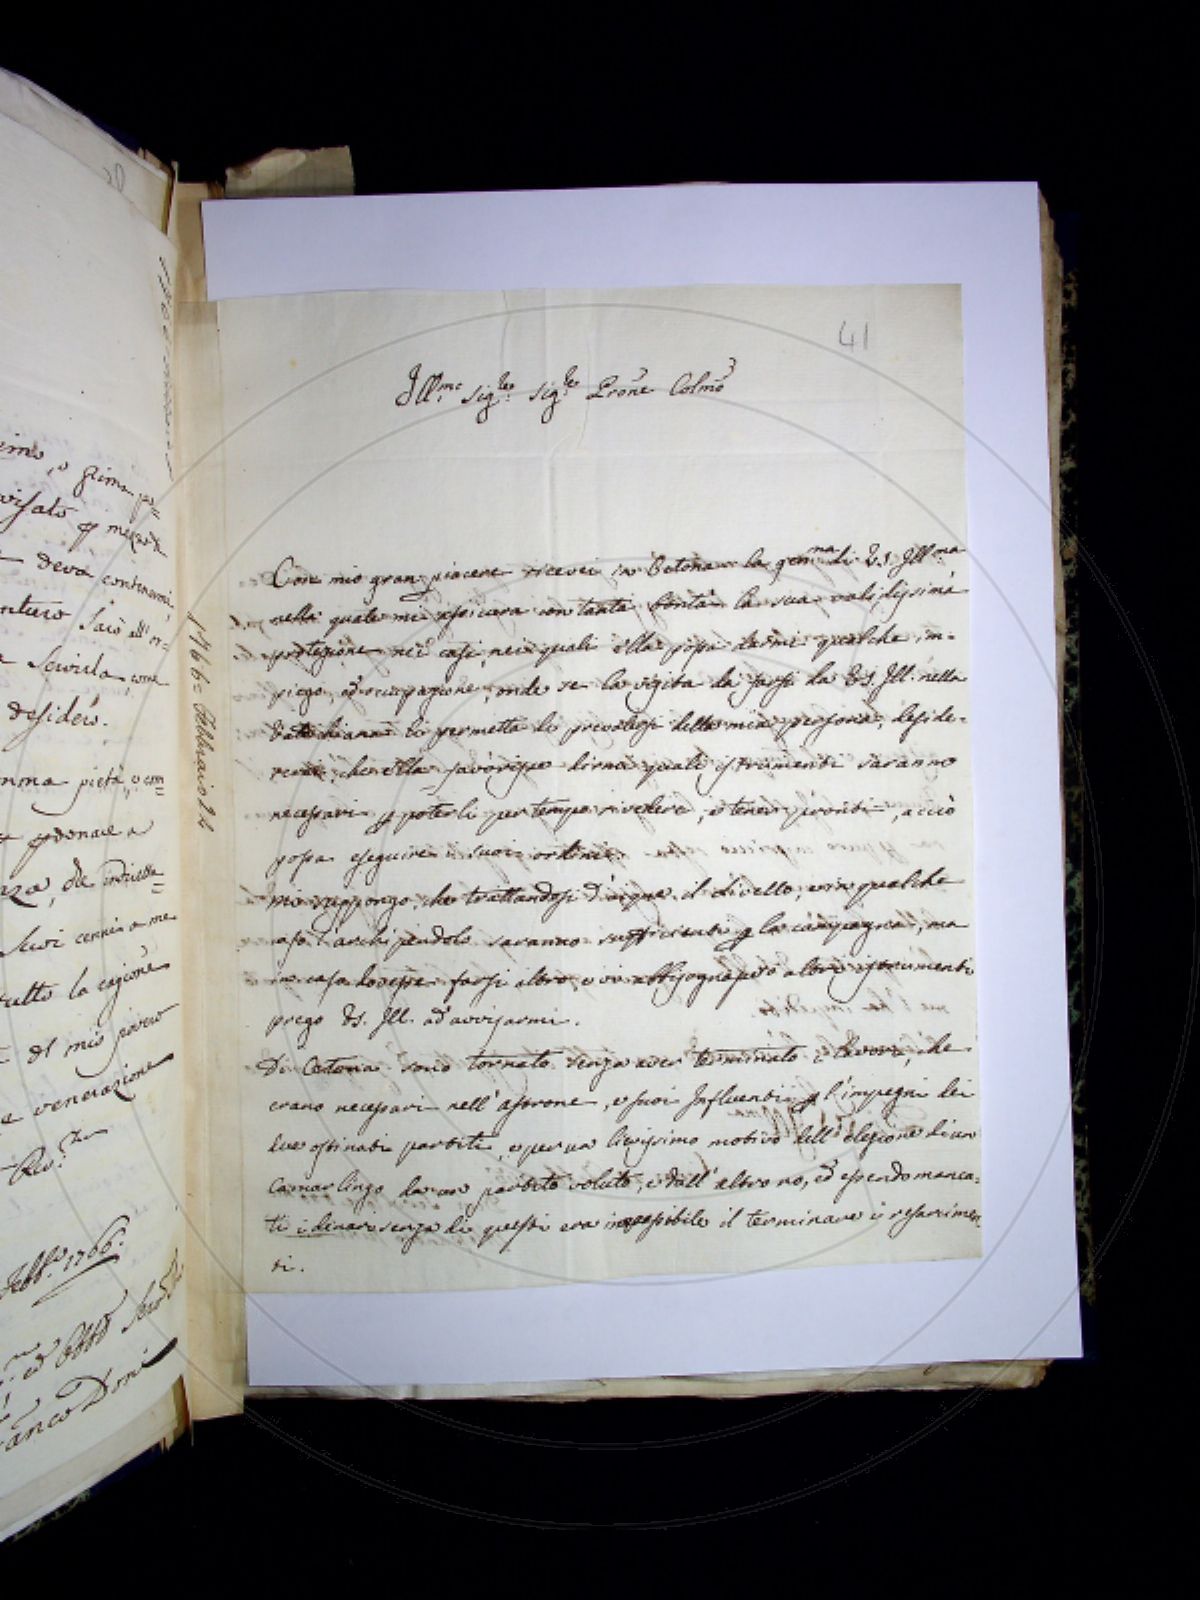 41
Ill.mo Sig.re Sig.re Prone Colmo
Con mio gran piacere ricevei in Betona la gen.ma di V.S. Ill.ma
nella quale mi assicura con tanta bontà la sua validissima
protezione nei casi, nei quali ella possa darmi qualche im-
piego, ed occupazione, onde se la visita da farsi da V.S. Ill. nella
Valdichiana li permetta di prevalersi della mia persona, deside-
rerei, che ella favorisse dirmi quali istrumenti saranno
necessari p poterli per tempo rivedere, e tener pronti, acciò
possa eseguire i suoi ordini.
Mi suppongo, che trattandosi d'acque il livello, e in qualche
caso l'archipendolo saranno sufficienti p la campagna, ma
in caso dovesse farsi altro, e vi abbisognasero altri istrumenti
prego V.S. Ill. ad avvisarmi.
Di Cetona sono tornato senza aver terminato i lavori, che
erano necessari nell' Astrone, e suoi Influenti p l'impegni dei
due ostinati partiti, e per un lievissimo motivo dell' elezione di un
Camarlingo da un partito voluto, e dall' altro no, ed essendo manca-
ti i denari senza di questi era impossibile il terminare i resarcimen-
ti.
1766 = Febbraio 24
deva contenermi,
Sarò all' or-
Servirla, come
desiderò.
omma pietà, e com=
donare a
suoi cenni a me
tutto la cagione
del mio povero
e venerazione
Febb.o 1766.
anco Doni